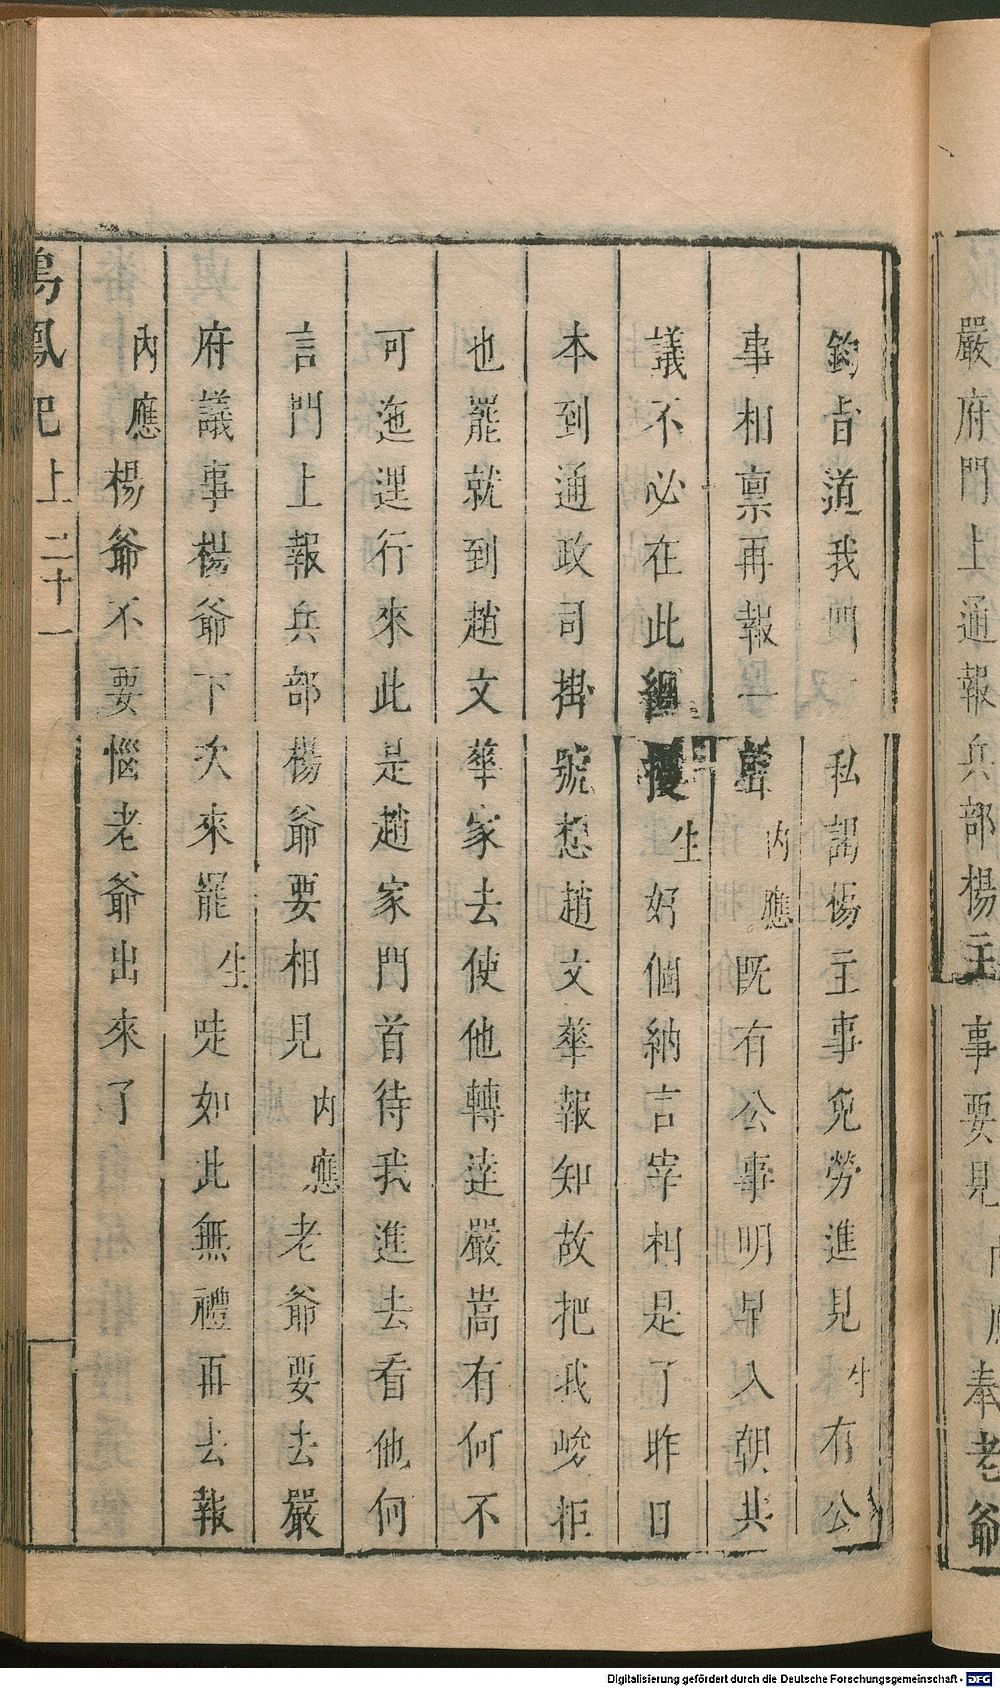 嚴府門上通報兵部楊主事要見內應奉老爺
鈞旨道我門一私謁楊主事免勞進見生有公
事相稟再報一聲內應既有公事明早入朝共
議不必在此纏擾生好個納言宰相是了昨日
本到通政司掛號想趙文華報知故把我峻拒
也罷就到趙文華家去使他轉達嚴嵩有何不
可迤逞行來此是趙家門首待我進去看他何
言門上報兵部楊爺要相見內應老爺要去嚴
府議事楊爺下次來罷生唗如此無禮再去報
內應楊爺不要惱老爺出來了
鳴鳳記上 二十一
Digitalisierung gefördert durch die Deutsche Forschungsgemeinschaft - DFG